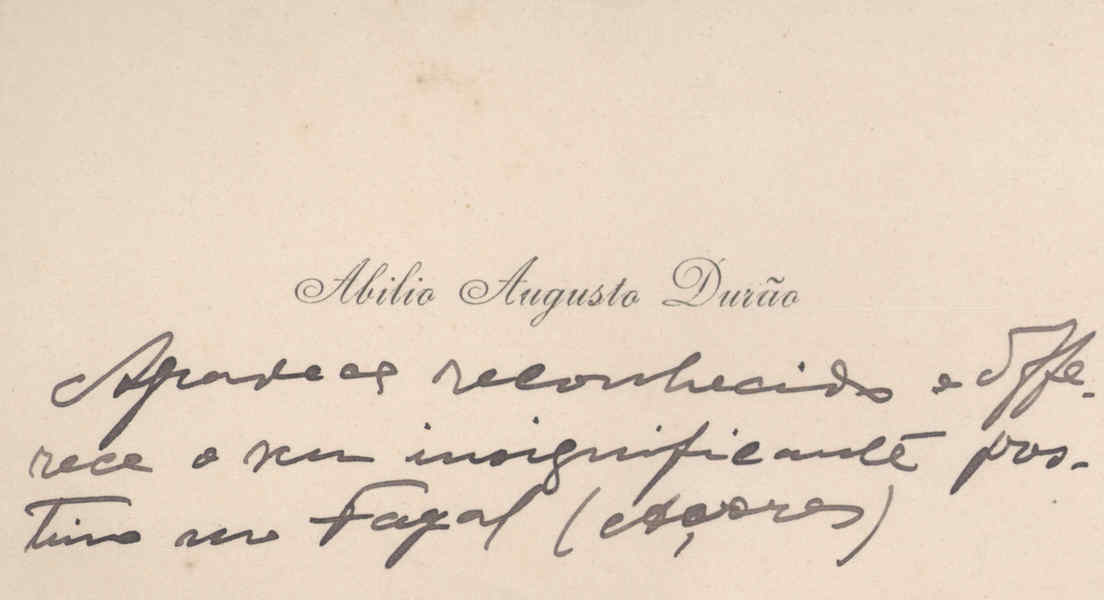 Abilio Augusto Durão
Agradece reconhecido e offe-
rece o seu insignificante pos-
timo no Fayal (Açores)